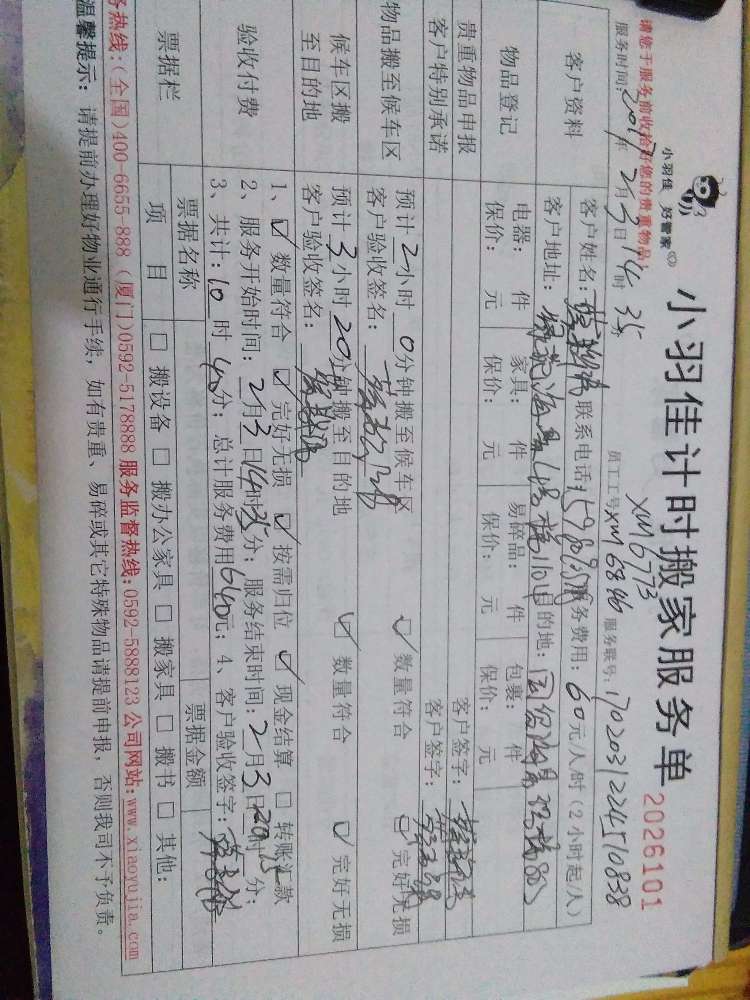 小羽佳 好管家
小羽佳计时搬家服务单
2026101
请您于服务前收拾好您的贵重物品!
XM6773
服务时间:2017年2月3日14时35分 员工工号XM6846 服务联号:1702031224510838
客户资料
客户姓名: 联系电话: 服务费用:60元/人/时(2小时起/人)
客户地址: 目的地:
物品登记
电器: 件 家具: 件 易碎品: 件 包裹: 件
保价: 元 保价: 元 保价: 元 保价: 元
贵重物品申报 客户签字:
客户特别承诺 客户签字:
物品搬至候车区
预计2小时0分钟搬至候车区 ☑数量符合 ☑完好无损
客户验收签名:
候车区搬至目的地
预计3小时20分钟搬至目的地 ☑数量符合 ☑完好无损
客户验收签名:
验收付费
1、☑数量符合 ☑完好无损 ☑按需归位 ☑现金结算 □转账汇款
2、服务开始时间:2月3日14时35分;服务结束时间:2月3日20时 分;
3、共计:10时40分;总计服务费用640元;4、客户验收签字:
票据栏
票据名称 票据金额
项目 □搬设备 □搬办公家具 □搬家具 □搬书 □其他:
务热线:(全国)400-6655-888 (厦门)0592-5178888 服务监督热线:0592-5888123 公司网站:www.xiaoyujia.com
温馨提示: 请提前办理好物业通行手续,如有贵重、易碎或其它特殊物品请提前申报,否则我司不予负责。